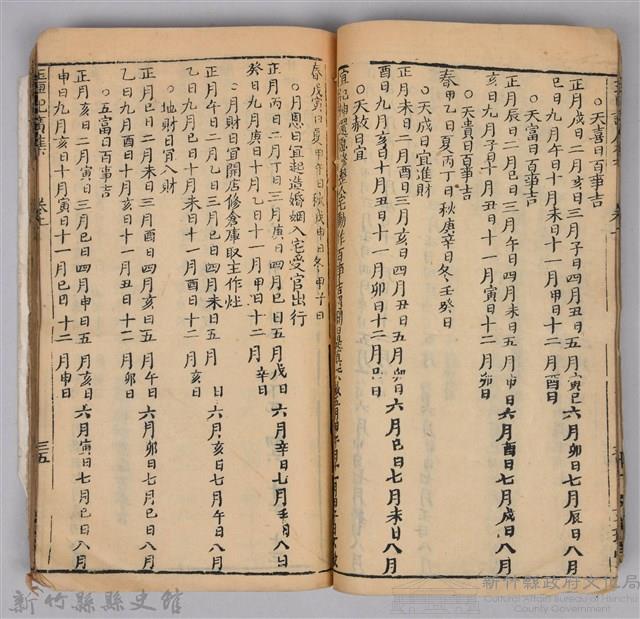 ○天喜日百事吉
正月戌日二月亥日三月子日四月丑日五月寅日六月卯日七月辰日八月
酉日九月午日十月未日十一月申日十二月酉日
○天富日百事吉
正月辰日二月巳日三月午日四月未日五月申日六月酉日七月戌日八月
亥日九月子日十月丑日十一月寅日十二月卯日
○天貴日百事吉
春甲乙日夏丙丁日秋庚辛日冬壬癸日
○天成日宜進財
正月未日二月酉日三月亥日四月丑日五月卯日六月巳日七月未日八月
酉日九月亥日十月丑日十一月卯日十二月巳日
○天赦日宜
春戊寅日夏甲午日秋戊申日冬甲子日
○月恩日宜起造婚姻入宅受官出行
正月丙日二月丁日三月庚日四月己日五月戊日六月辛日七月壬日八月
癸日九月庚日十月乙日十一月甲日十二月辛日
○月財日宜開店修倉庫取土作灶
正月午日二月乙日三月巳日四月未日五月 日六月亥日七月午日八月
乙日九月巳日十月未日十一月酉日十二月亥日
○地財日宜入財
正月巳日二月未日三月酉日四月亥日五月午日六月卯日七月巳日八月
乙日九月酉日十月亥日十一月丑日十二月卯日
○五富日百事吉
正月亥日二月寅日三月巳日四月申日五月亥日六月寅日七月巳日八月
申日九月亥日十月寅日十一月巳日十二月申日
三五
新竹縣縣史館
新竹縣政府文化局
Cultural Affairs Bureau of Hsinchu
County Government